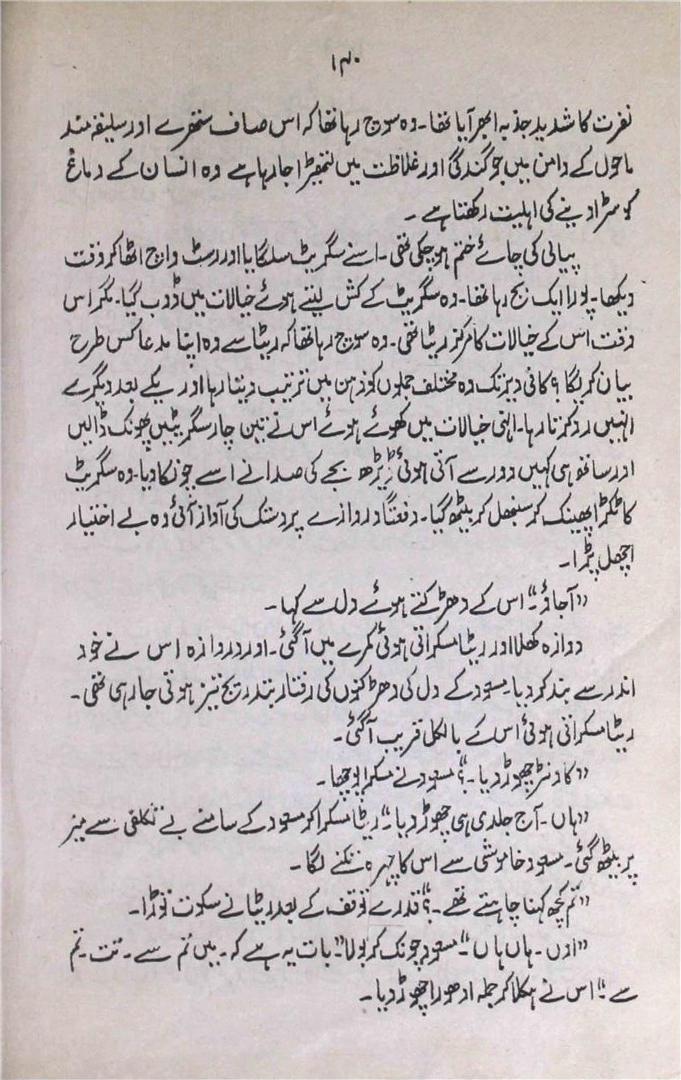 ۱۴۰
نفرت کا شدید جذبہ ابھر آیا تھا۔ وہ سوچ رہا تھا کہ اس صاف ستھرے اور سلیقہ مند
ماحول کے دامن میں جو گندگی اور غلاظت میں لتھیڑا جا رہا ہے وہ انسان کے دماغ
کو سڑا دینے کی اہلیت رکھتا ہے۔
پیالی کی چائے ختم ہو چکی تھی۔ اسنے سگریٹ سلگایا اور رسٹ واچ اٹھا کر وقت
دیکھا۔ پورا ایک بج رہا تھا۔ وہ سگریٹ کے کش لیتے ہوئے خیالات میں ڈوب گیا۔ مگر اس
وقت اس کے خیالات کا مرکز ریٹا تھی۔ وہ سوچ رہا تھا کہ ریٹا سے وہ اپنا مدعا کس طرح
بیان کر لگا؟ کافی دیر تک وہ مختلف جملوں کو ذہن میں ترتیب دیتا رہا اور یکے بعد دیگرے
انہیں رد کرتا رہا۔ انہی خیالات میں کھوئے ہوئے اس نے تین چار سگریٹیں پھونک ڈالیں
اور ساتھ ہی کہیں دور سے آتی ہوئی ڈیڑھ بجے کی صدا نے اسے چونکا دیا۔ وہ سگریٹ
کا ٹکڑا پھینک کر سنبھل کر بیٹھ گیا۔ دفعتاً دروازے پر دستک کی آواز آئی وہ بے اختیار
اچھل پڑا۔
”آ جاؤ۔“ اس کے دھڑکتے ہوئے دل سے کہا۔
دوازہ کھلا اور ریٹا مسکراتی ہوئی کمرے میں آ گئی۔ اور دروازہ اس نے خود
اندر سے بند کر دیا۔ مسعود کے دل کی دھڑکنوں کی رفتار بتدریج تیز ہوتی جا رہی تھی۔
ریٹا مسکراتی ہوئی اس کے بالکل قریب آ گئی۔
”کاونٹر چھوڑ دیا۔؟“ مسعود نے مسکرا پوچھا۔
”ہاں۔ آج جلدی ہی چھوڑ دیا۔“ ریٹا مسکرا کر مسعود کے سامنے بے تکلفی سے میز
پر بیٹھ گئی۔ مسعود خاموشی سے اس کا چہرہ تکنے لگا۔
”تم کچھ کہنا چاہتے تھے۔؟“ قدرے توقف کے بعد ریٹا نے سکوت توڑا۔
”اوں۔ ہاں ہاں“ مسعود چونک کر بولا ”بات یہ ہے کہ۔ میں تم سے۔ تت۔ تم
سے۔“ اس نے ہکلا کر جملہ ادھورا چھوڑ دیا۔